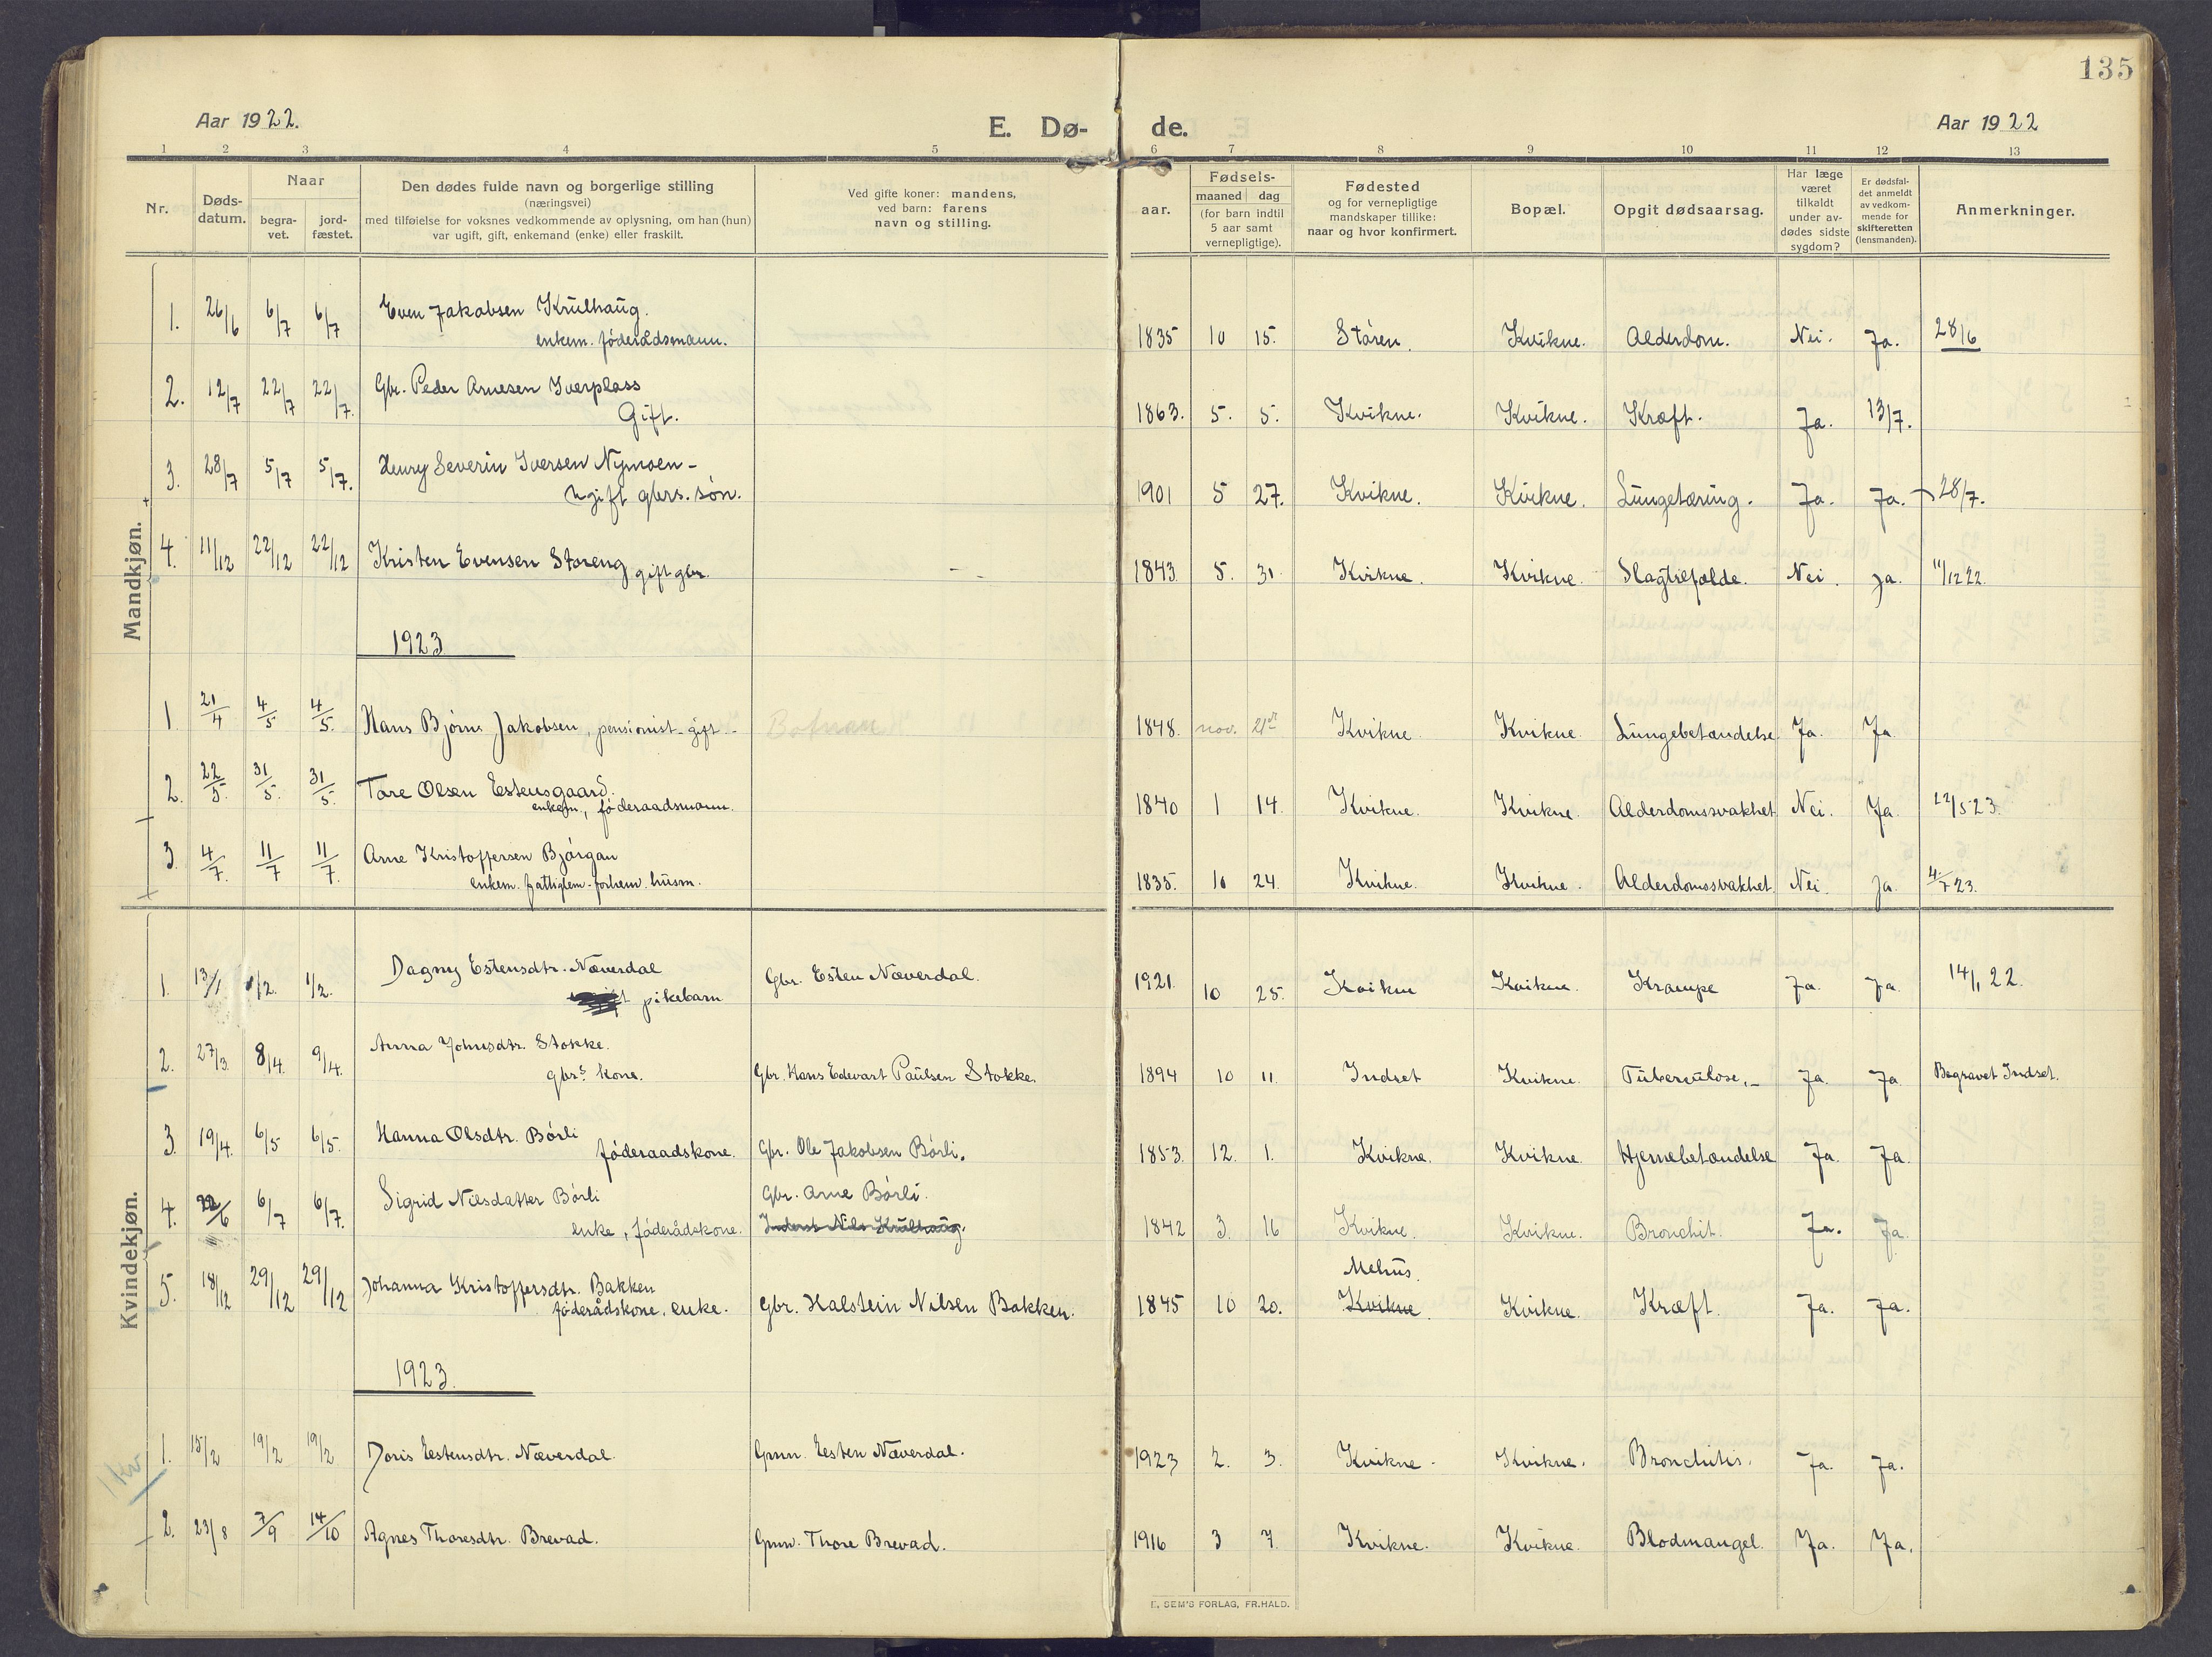 135
Aar 1922.
E. Dø-
de.
Aar 1922
1 2 3 4 5 6 7 8 9 10 11 12 13
Nr.
Døds-
datum.
Naar
begra-
vet.
jord-
fæstet.
Den dødes fulde navn og borgerlige stilling
(næringsvei)
med tilføielse for voksnes vedkommende av oplysning, om han (hun)
var ugift, gift, enkemand (enke) eller fraskilt.
Ved gifte koner: mandens,
ved barn: farens
navn og stilling.
Fødsels-
aar.
maaned dag
(for barn indtil
5 aar samt
vernepligtige).
Fødested
og for vernepligtige
mandskaper tillike:
naar og hvor konfirmert.
Bopæl.
Opgit dødsaarsag.
Har læge
været
tilkaldt
under av-
dødes sidste
sygdom?
Er dødsfal-
det anmeldt
av vedkom-
mende for
skifteretten
(lensmanden).
Anmerkninger.
Mandkjøn.
1. 26/6 6/7 6/7 Even Jakobsen Krulhaug.
enkem. føderådsmann. 1835 10 15. Støren. Kvikne. Alderdom. Nei. Ja. 28/6
2. 12/7 22/7 22/7. Gbr. Peder Arnesen Iverplass
Gift. 1863. 5. 5. Kvikne. Kvikne. Kræft. Ja. 13/7.
3. 28/7 5/7 5/7. Henry Severin Iversen Nymoen -
ugift gbrs. søn. 1901 5 27. Kvikne. Kvikne. Lungetæring. Ja. Ja. 28/7.
4. 11/12 22/12 22/12 Kristen Evensen Storeng gift gbr. 1843. 5. 31 Kvikne. Kvikne. Slagtilfælde. Nei. Ja. 11/12 22.
1923
1 21/4 4/5 4/5. Hans Bjørn Jakobsen, pensionist - gift - 1848. nov. 21 Kvikne Kvikne. Lungebetændelse Ja. Ja
2. 22/5. 31/5. 31/5. Tore Olsen Estensgaard.
enkem., føderaadsmann. 1840 1 14. Kvikne. Kvikne. Alderdomssvakhet Nei. Ja. 22/5 23.
3. 4/7. 11/7 11/7. Arne Kristoffersen Bjørgan
enkem. fattiglem - forhenv. husm. 1835. 10 24. Kvikne. Kvikne. Alderdomssvakhet Nei. Ja. 4/7 23.
Kvindekjøn.
1. 13/1 1/2. 1/2. Dagny Estensdtr. Næverdal
pikebarn Gbr. Esten Næverdal. 1921. 10 25. Kvikne Kvikne. Krampe Ja. Ja. 14/1 22.
2. 27/3. 8/4. 9/4. Anna Johnsdtr. Stokke.
gbrs kone. Gbr. Hans Edevart Paulsen Stokke. 1894 10 11. Indset Kvikne. Tuberculose. - Ja. Ja Begravet Indset.
3. 19/4. 6/5 6/5. Hanna Olsdtr. Børli
føderaadskone. Gbr. Ole Jakobsen Børli. 1853. 12. 1. Kvikne. Kvikne. Hjernebetændelse Ja. Ja.
4. 22/6 6/7 6/7. Sigrid Nilsdatter Børli Gbr. Arne Børli.
enke, føderådskone. Inderst Nils Krulhaug. 1842 3. 16 Kvikne. Kvikne. Bronchit. Ja. Ja.
5. 18/12 29/12 29/12 Johanna Kristoffersdtr. Bakken Melhus.
føderådskone, enke. Gbr. Halstein Nilsen Bakken. 1845 10 20. Kvikne. Kvikne. Kræft. Ja. Ja.
1923.
1 Kv
1. 15/2 19/2 19/2 Doris Estensdtr. Næverdal. Gmn. Esten Næverdal. 1923 2. 3. Kvikne. Kvikne. Bronchitis. Ja. Ja.
2. 23/8 7/9 14/10 Agnes Thoresdtr. Brevad. Gmn. Thore Brevad. 1916 3 7. Kvikne. Kvikne. Blodmangel. Ja. Ja.
E. SEM'S FORLAG, FR.HALD.